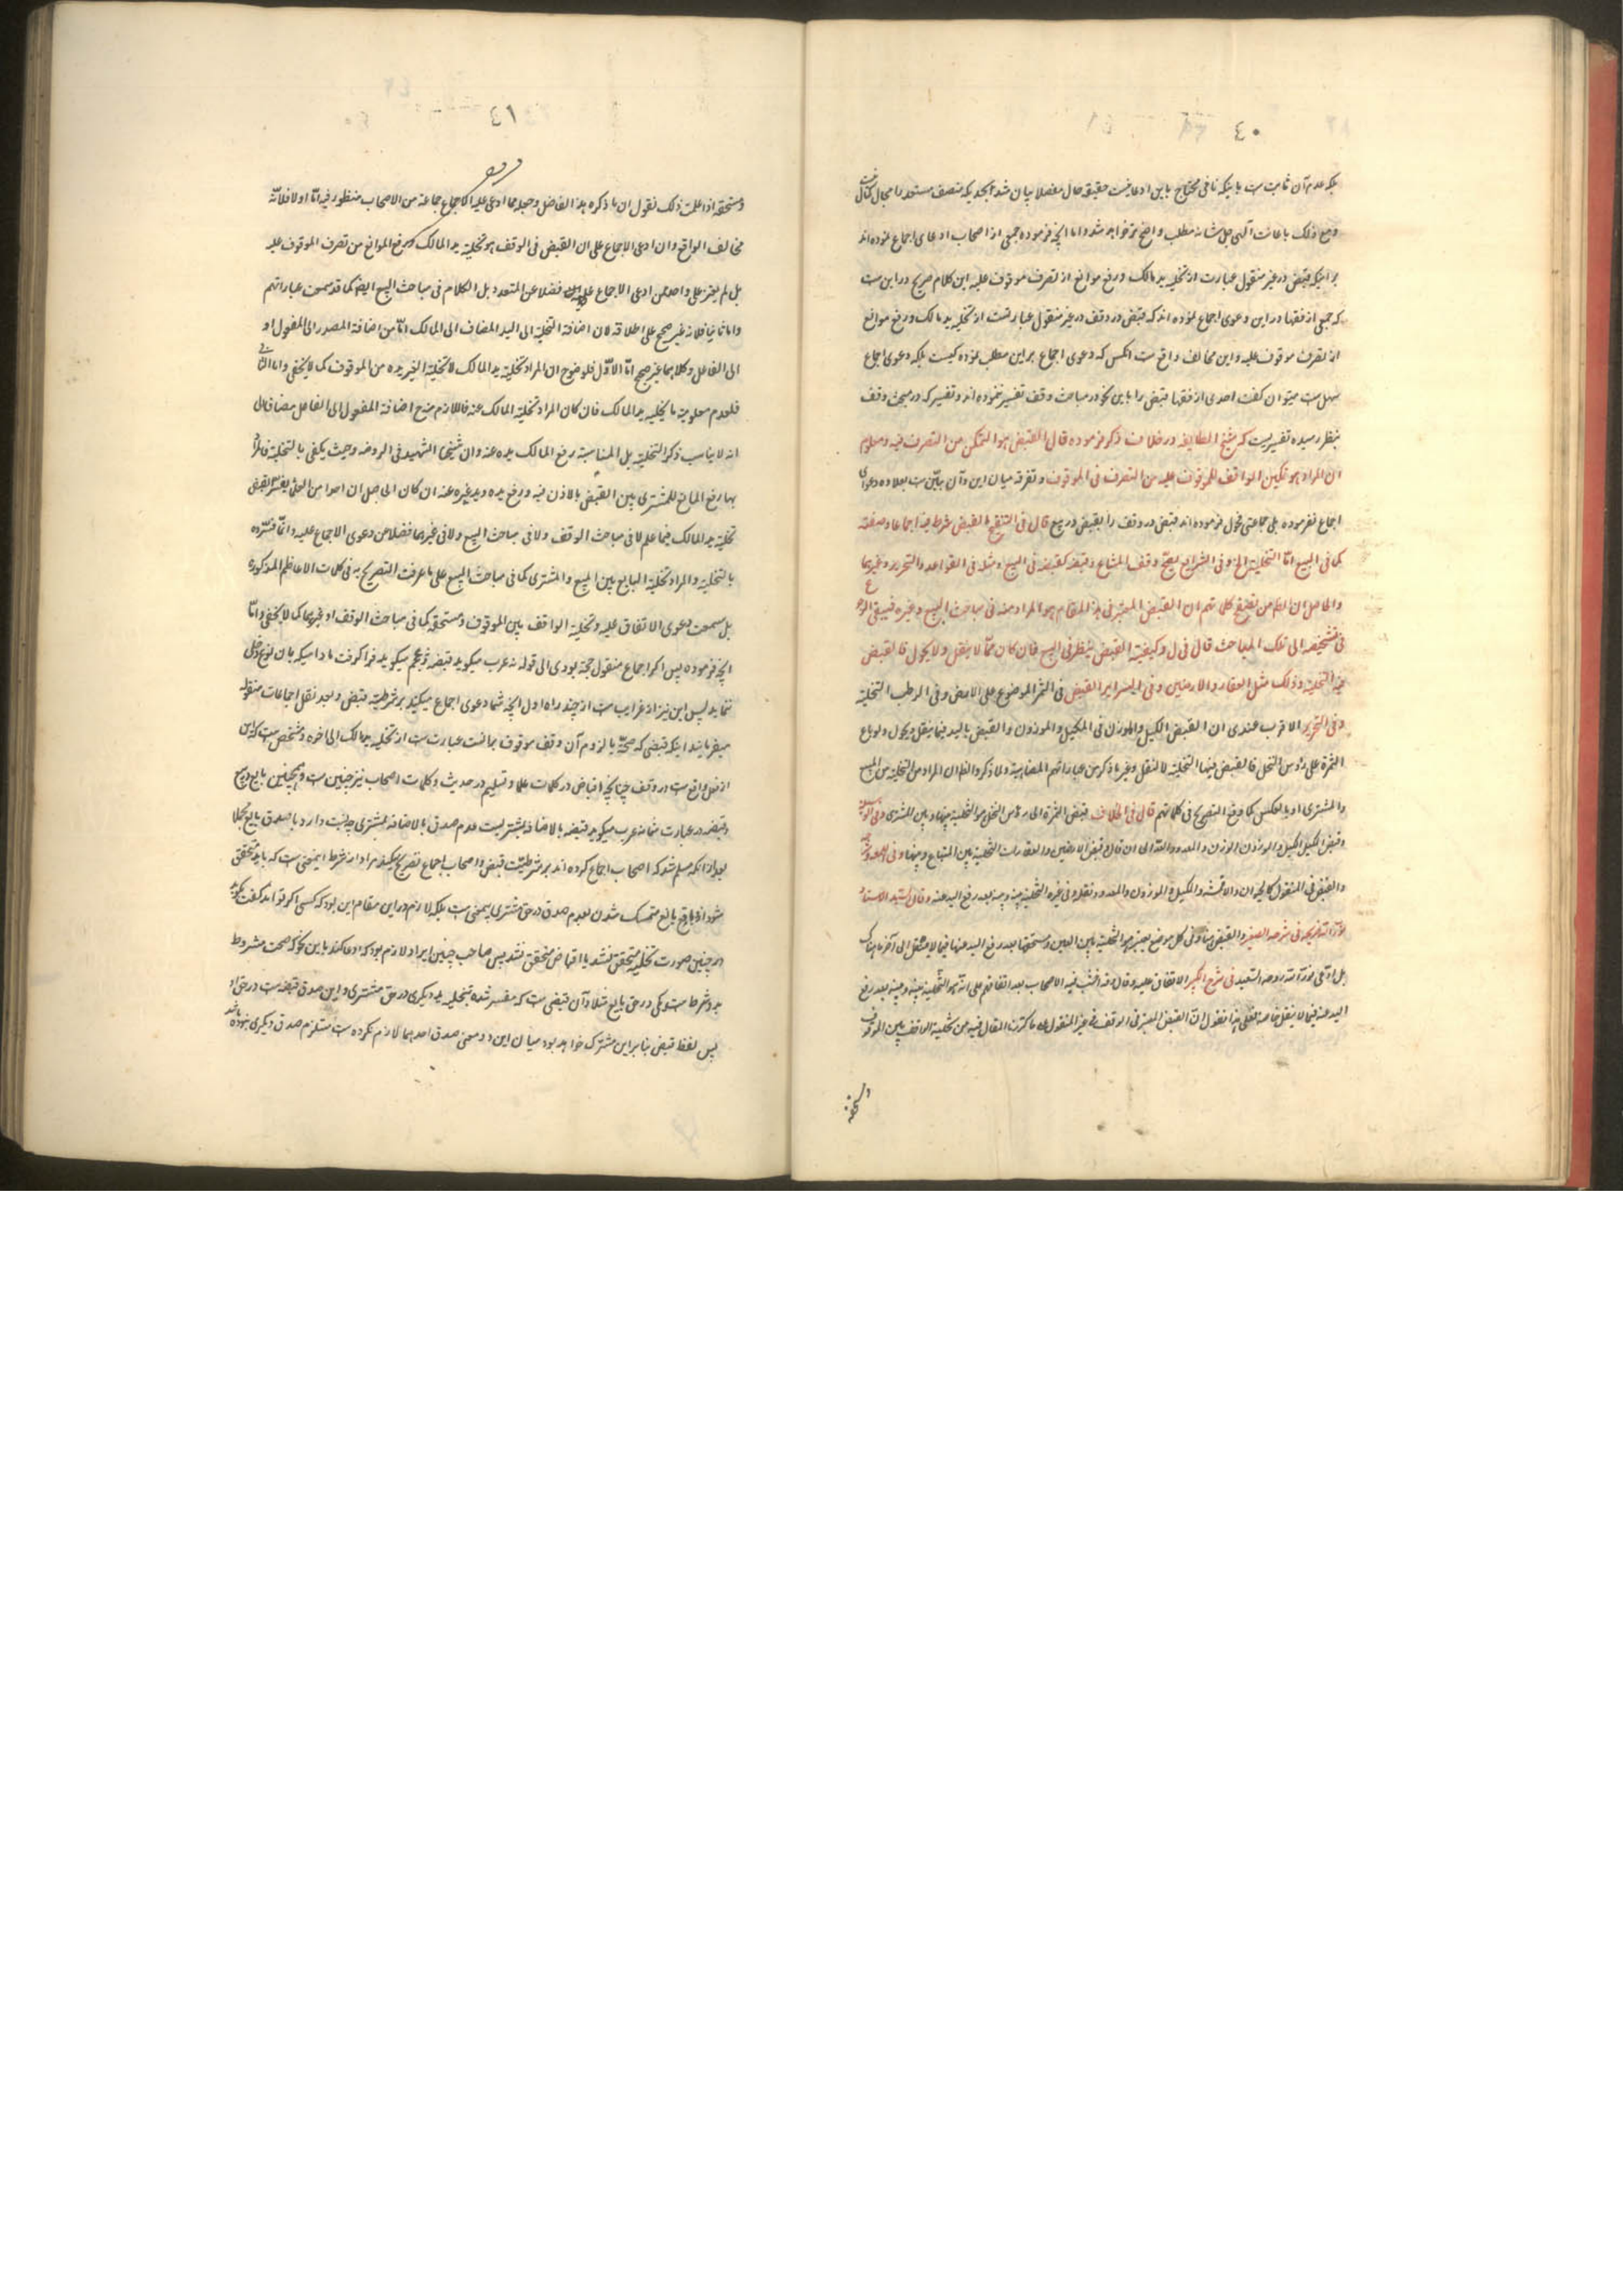 ٤٠
بلکه عدم آن ثابت است با اینکه نافی محتاج باین ادعا نیست حقیقة حال مفصلا بیان شد بحدیکه منصف مستعد را مجال
ومع ذلک باعانت آلهی جل شانه مطلب واضح تر خواهد شد واما آنچه فرموده جمعی از اصحاب ادعای اجماع نموده اند
بر اینکه قبض در غیر منقول عبارت از تخلیه ید مالک ورفع موانع از تصرف موقوف علیه این کلام صریح در این است
که جمعی از فقها در این دعوی اجماع نموده اند که قبض در وقف در غیر منقول عبارتست از تخلیه ید مالک ورفع موانع
از تصرف موقوف علیه واین مخالف واقع است آنکس که دعوی اجماع بر این مطلب نموده کیست بلکه دعوی اجماع
سهل است میتوان گفت احدی از فقها قبض را باین نحو در مباحث وقف تفسیر ننموده اند وتفسیر که در مبحث وقف
بنظر رسیده تفسیریست که شیخ الطایفه در خلاف ذکر فرموده قال القبض هو التمکن من التصرف فیه ومعلوم
ان المراد هو تمکین الواقف للموقوف علیه من التصرف فی الموقوف وتفرقه میان این وآن بیّن است بعلاوه دعوای
اجماع نفرموده بلی جماعتی محول فرموده اند قبض در وقف را بقبض در بیع قال فی التنقیح القبض شرط فیه اجماعا وصفته
کما فی البیع امّا التخلیة الخ وفی الشرایع یصحّ وقف المشاع وقبضه کقبضه فی البیع ومثله فی القواعد والتحریر وغیرهما
والحاصل ان الظ من تصفح کلماتهم ان القبض المعتبر فی هذا المقام هو المراد منه فی مباحث البیع وغیره فینبغی الرجوع
فی تشخیصه الی تلک المباحث قال فی ل وکیفیة القبض ینظر فی البیع فان کان ممّا لا ینقل ولا یحول فالقبض
فیه التخلیة وذلک مثل العقار والارضین وفی السرایر القبض فی الثمر الموضوع علی الارض وفی الرطب التخلیة
وفی التحریر الاقرب عندی ان القبض الکیل والوزن فی المکیل والموزون والقبض بالید فیما ینقل ویحول ولو باع
الثمرة علی رؤس النخل فالقبض فیها التخلیة لا النقل وغیر ما ذکر من عباراتهم المضاهیة لما ذکر والظ ان المراد من التخلیة بین المبیع
والمشتری او بالعکس کما وقع التصریح فی کلماتهم قال فی الخلاف قبض الثمرة الی رؤس النخل هو التخلیة بینها وبین المشتری وفی
وقبض المکیل الکیل والموزون الوزن والمعدود العدّ الی ان قال وقبض الارضین والعقارات التخلیة بین المبتاع وبینها وفی
والقبض فی المنقول کالحیوان والاقمشه والمکیل والموزون والمعدود ونقله وفی غیره التخلیة بینه وبینه بعد رفع الید عنه وقال السید الاستاد
فی شرحه الصغیر والقبض هنا وفی کل موضع یعتبر هو التخلیة بین العین ومستحقها بعد رفع الید عنها فیما لا ینتقل الی آخر ما هناک
بل ادّعی نور الله روحه السعید فی شرح الکبیر الاتفاق علیه وقال قد اختلف فیه الاصحاب بعد اتفاقهم علی انه هو التخلیة بینه وبینه بعد رفع
الید عنه فیما لا ینقل خاصة فعلی هذا نقول انّ القبض المعتبر فی الوقف فی غیر المنقول ما کررت المقال فیه من تخلیة الواقف بین الموقوف
ومستحقه
٤١
ومستحقه اذا علمت ذلک نقول ان ما ذکره هذا الفاضل وجعله مما ادعی علیه الاجماع جماعة من الاصحاب منظور فیه امّا اولا فلانّه
مخالف الواقع وان ادعی الاجماع علی ان القبض فی الوقف هو تخلیة ید المالک ورفع الموانع من تصرف الموقوف علیه
بل لم یعثر علی واحد ممن ادعی الاجماع علیه فضلا عن المتعدد بل الکلام فی مباحث البیع ایضا کما قد سمعت عباراتهم
واما ثانیا فلانه غیر صحیح علی اطلاقه لان اضافة التخلیة الی الید المضاف الی المالک امّا من اضافة المصدر الی المفعول او
الی الفاعل وکلاهما غیر صحیح امّا الاوّل فلوضوح ان المراد تخلیة ید المالک لا تخلیة الغیر یده من الموقوف کما لا یخفی واما الثانی
فلعدم معلومیة ما یخلیه ید المالک فان کان المراد تخلیة المالک عنه فاللازم ح اضافة المفعول الی الفاعل مضافا الی
انه لا یناسب ذکر التخلیة بل المناسبة رفع المالک یده عنه وان شیخنا الشهید فی الروضه وحیث یکفی بالتخلیة فالمراد
بها رفع المانع للمشتری بین القبض بالاذن فیه ورفع یده وید غیره عنه ان کان الی الحاصل ان احدا من العلماء لم یفسر القبض
تخلیة ید المالک فیما علم لا فی مباحث الوقف ولا فی مباحث البیع ولا فی غیرهما فضلا عن دعوی الاجماع علیه وانّما فسّروه
بالتخلیة والمراد تخلیة البایع بین المبیع والمشتری کما فی مباحث البیع علی ما عرفت التصریح به فی کلمات الاعاظم المذکورة
بل سمعت دعوی الاتفاق علیه وتخلیة الواقف بین الموقوف ومستحقه کما فی مباحث الوقف او غیرهما کما لا یخفی وامّا
آنچه فرموده پس اگر اجماع منقول حجة بودی الی قوله نه عرب میگوید قبضه ونه عجم میگوید فرا گرفت مادامیکه بان نوع دخلی
ننماید پس این نیز از غرایب است از چند راه اول آنچه شما دعوی اجماع میکنید بر شرطیت قبض وبعد نقل اجماعات منقوله
میفرمایند اینکه قبضی که صحّة یا لزوم آن وقف موقوف بمانست عبارت است از تخلیه ید مالک الی اخره ومشخص است که این
از فعل واقع است در وقف چنانکه اقباض در کلمات علما وتسلیم در حدیث وکلمات اصحاب نیز چنین است وهمچنین بایع در بیع
وقبضه در عبارت شما نه عرب میگوید قبضه بالاضافه بمشتریست عدم صدق بالاضافه بمشتری چه نسبت دارد با صدق بایع مثلا
بعد از آنکه مسلم شد که اصحاب اجماع کرده اند بر شرطیّت قبض واصحاب اجماع تصریح میکنند مراد از شرط اینمعنی است که باید متحقق
شود از واقف یا بایع متمسک شدن بعدم صدق در حق مشتری بیمعنی است بلکه لازم در این مقام این بود که کسی اگر تواند گفت بگوید
در چنین صورت تخلیه متحقق نشد یا اقباض متحقق نشد پس صاحب چنین ایراد لازم بود که ادعا کند باین نحو که صحت مشروط
بدو شرط است یکی در حق بایع مثلا وآن قبضی است که مفسر شده بتخلیه ید دیگری در حق مشتری واین صدق قبضه است در حق او
پس لفظ قبض بنابر این مشترک خواهد بود میان این دو معنی صدق احدهما لازم نکرده است مستلزم صدق دیگری بوده باشد